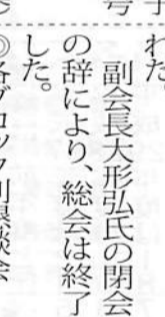 われた。
副会長大形弘氏の閉会
の辞により、総会は終了
した。
◎各ブロック別懇談会